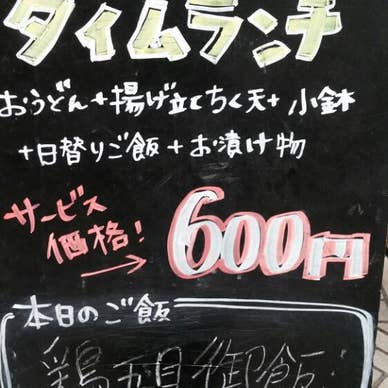 タイムランチ
おうどん+揚げ立てちく天+小鉢
+日替りご飯+お漬け物
サービス
価格!
→
600円
本日のご飯
鶏五目御飯